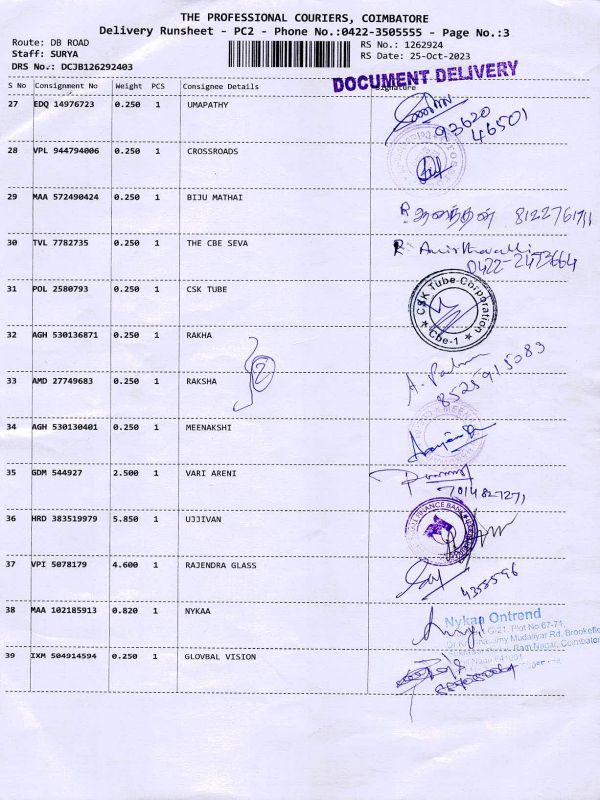 THE PROFESSIONAL COURIERS, COIMBATORE
Delivery Runsheet - PC2 - Phone No.:0422-3505555 - Page No.:3
Route: DB ROAD
Staff: SURYA
DRS No.: DCJB126292403
RS No.: 1262924
RS Date: 25-Oct-2023
DOCUMENT DELIVERY
S No Consignment No Weight PCS Consignee Details Signature
27 EDQ 14976723 0.250 1 UMAPATHY
93620
46501
28 VPL 944794006 0.250 1 CROSSROADS
29 MAA 572490424 0.250 1 BIJU MATHAI R ஆனந்தன் 8122761711
30 TVL 7782735 0.250 1 THE CBE SEVA R Amirthavalli
0422-2473664
31 POL 2580793 0.250 1 CSK TUBE
CSK Tube Corporation
★ Cbe-1 ★
32 AGH 530136871 0.250 1 RAKHA
2
33 AMD 27749683 0.250 1 RAKSHA
8525915083
34 AGH 530130401 0.250 1 MEENAKSHI
35 GDM 544927 2.500 1 VARI ARENI
7014827271
36 HRD 383519979 5.850 1 UJJIVAN
FINANCE BANK
37 VPI 5078179 4.600 1 RAJENDRA GLASS
4355596
38 MAA 102185913 0.820 1 NYKAA
Nykaa Ontrend
G/21, Plot No 67-71,
Mudaliyar Rd, Brookefie
Ram Nagar, Coimbator
39 IXM 504914594 0.250 1 GLOVBAL VISION